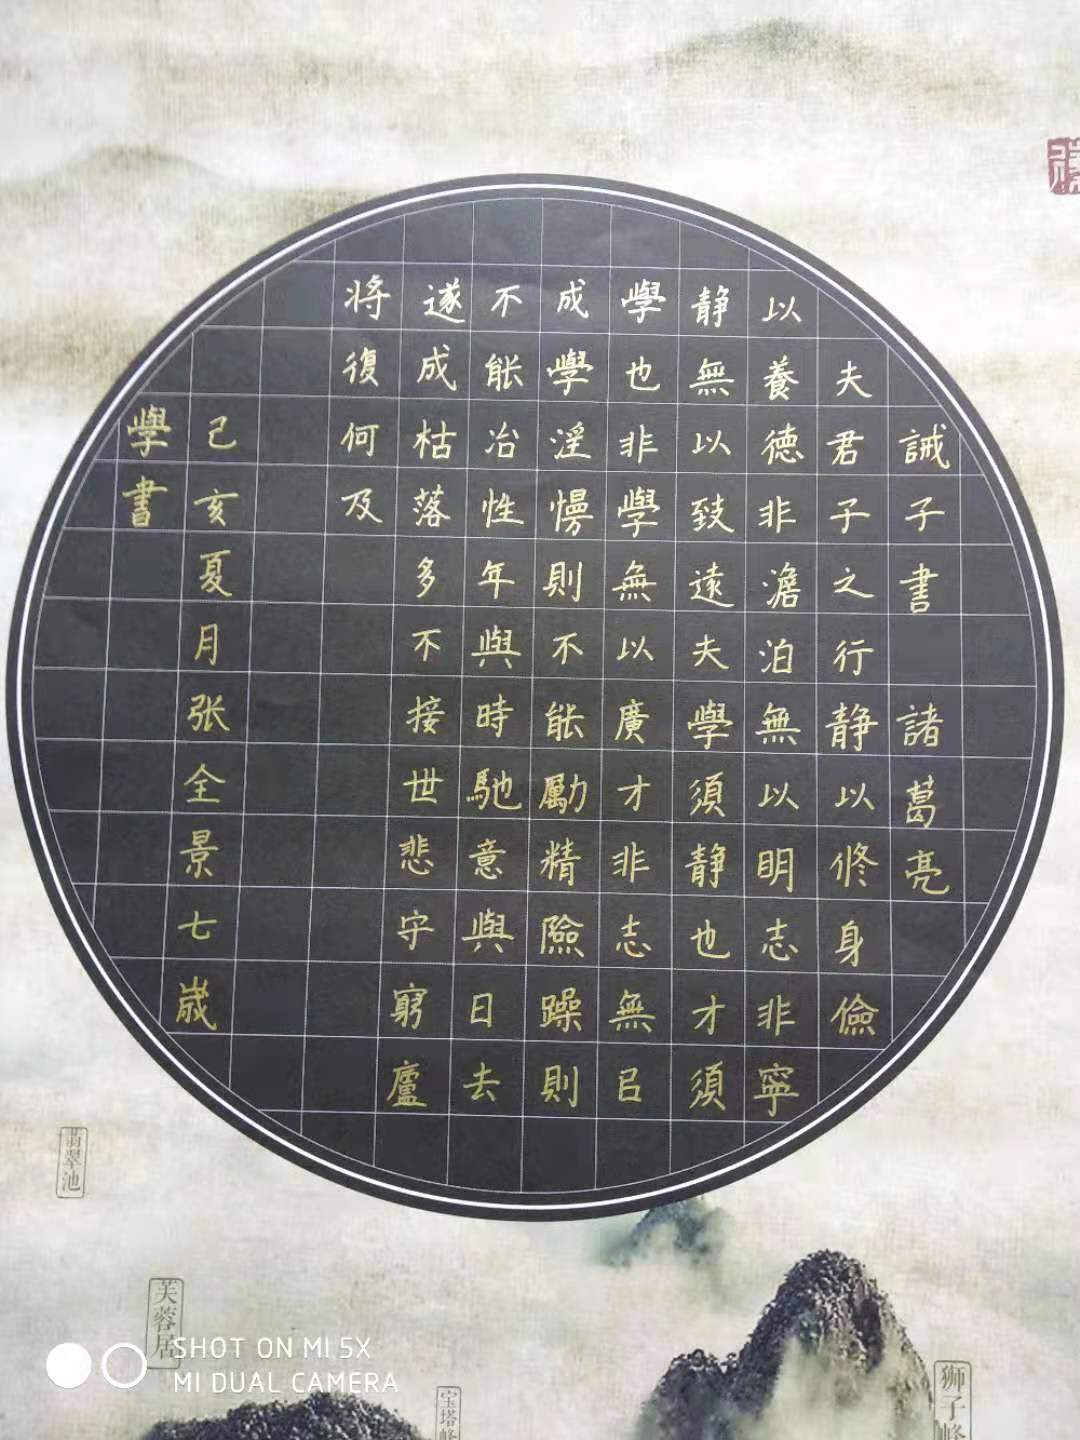 誡子書 諸葛亮
夫君子之行静以修身儉
以養德非澹泊無以明志非寧
静無以致遠夫學須静也才須
學也非學無以廣才非志無㠯
成學淫慢則不能勵精險躁則
不能冶性年與時馳意與日去
遂成枯落多不接世悲守窮廬
将復何及
己亥夏月张全景七歲
學書
翡翠池
芙蓉居
宝塔峰
狮子峰
SHOT ON MI 5X
MI DUAL CAMERA